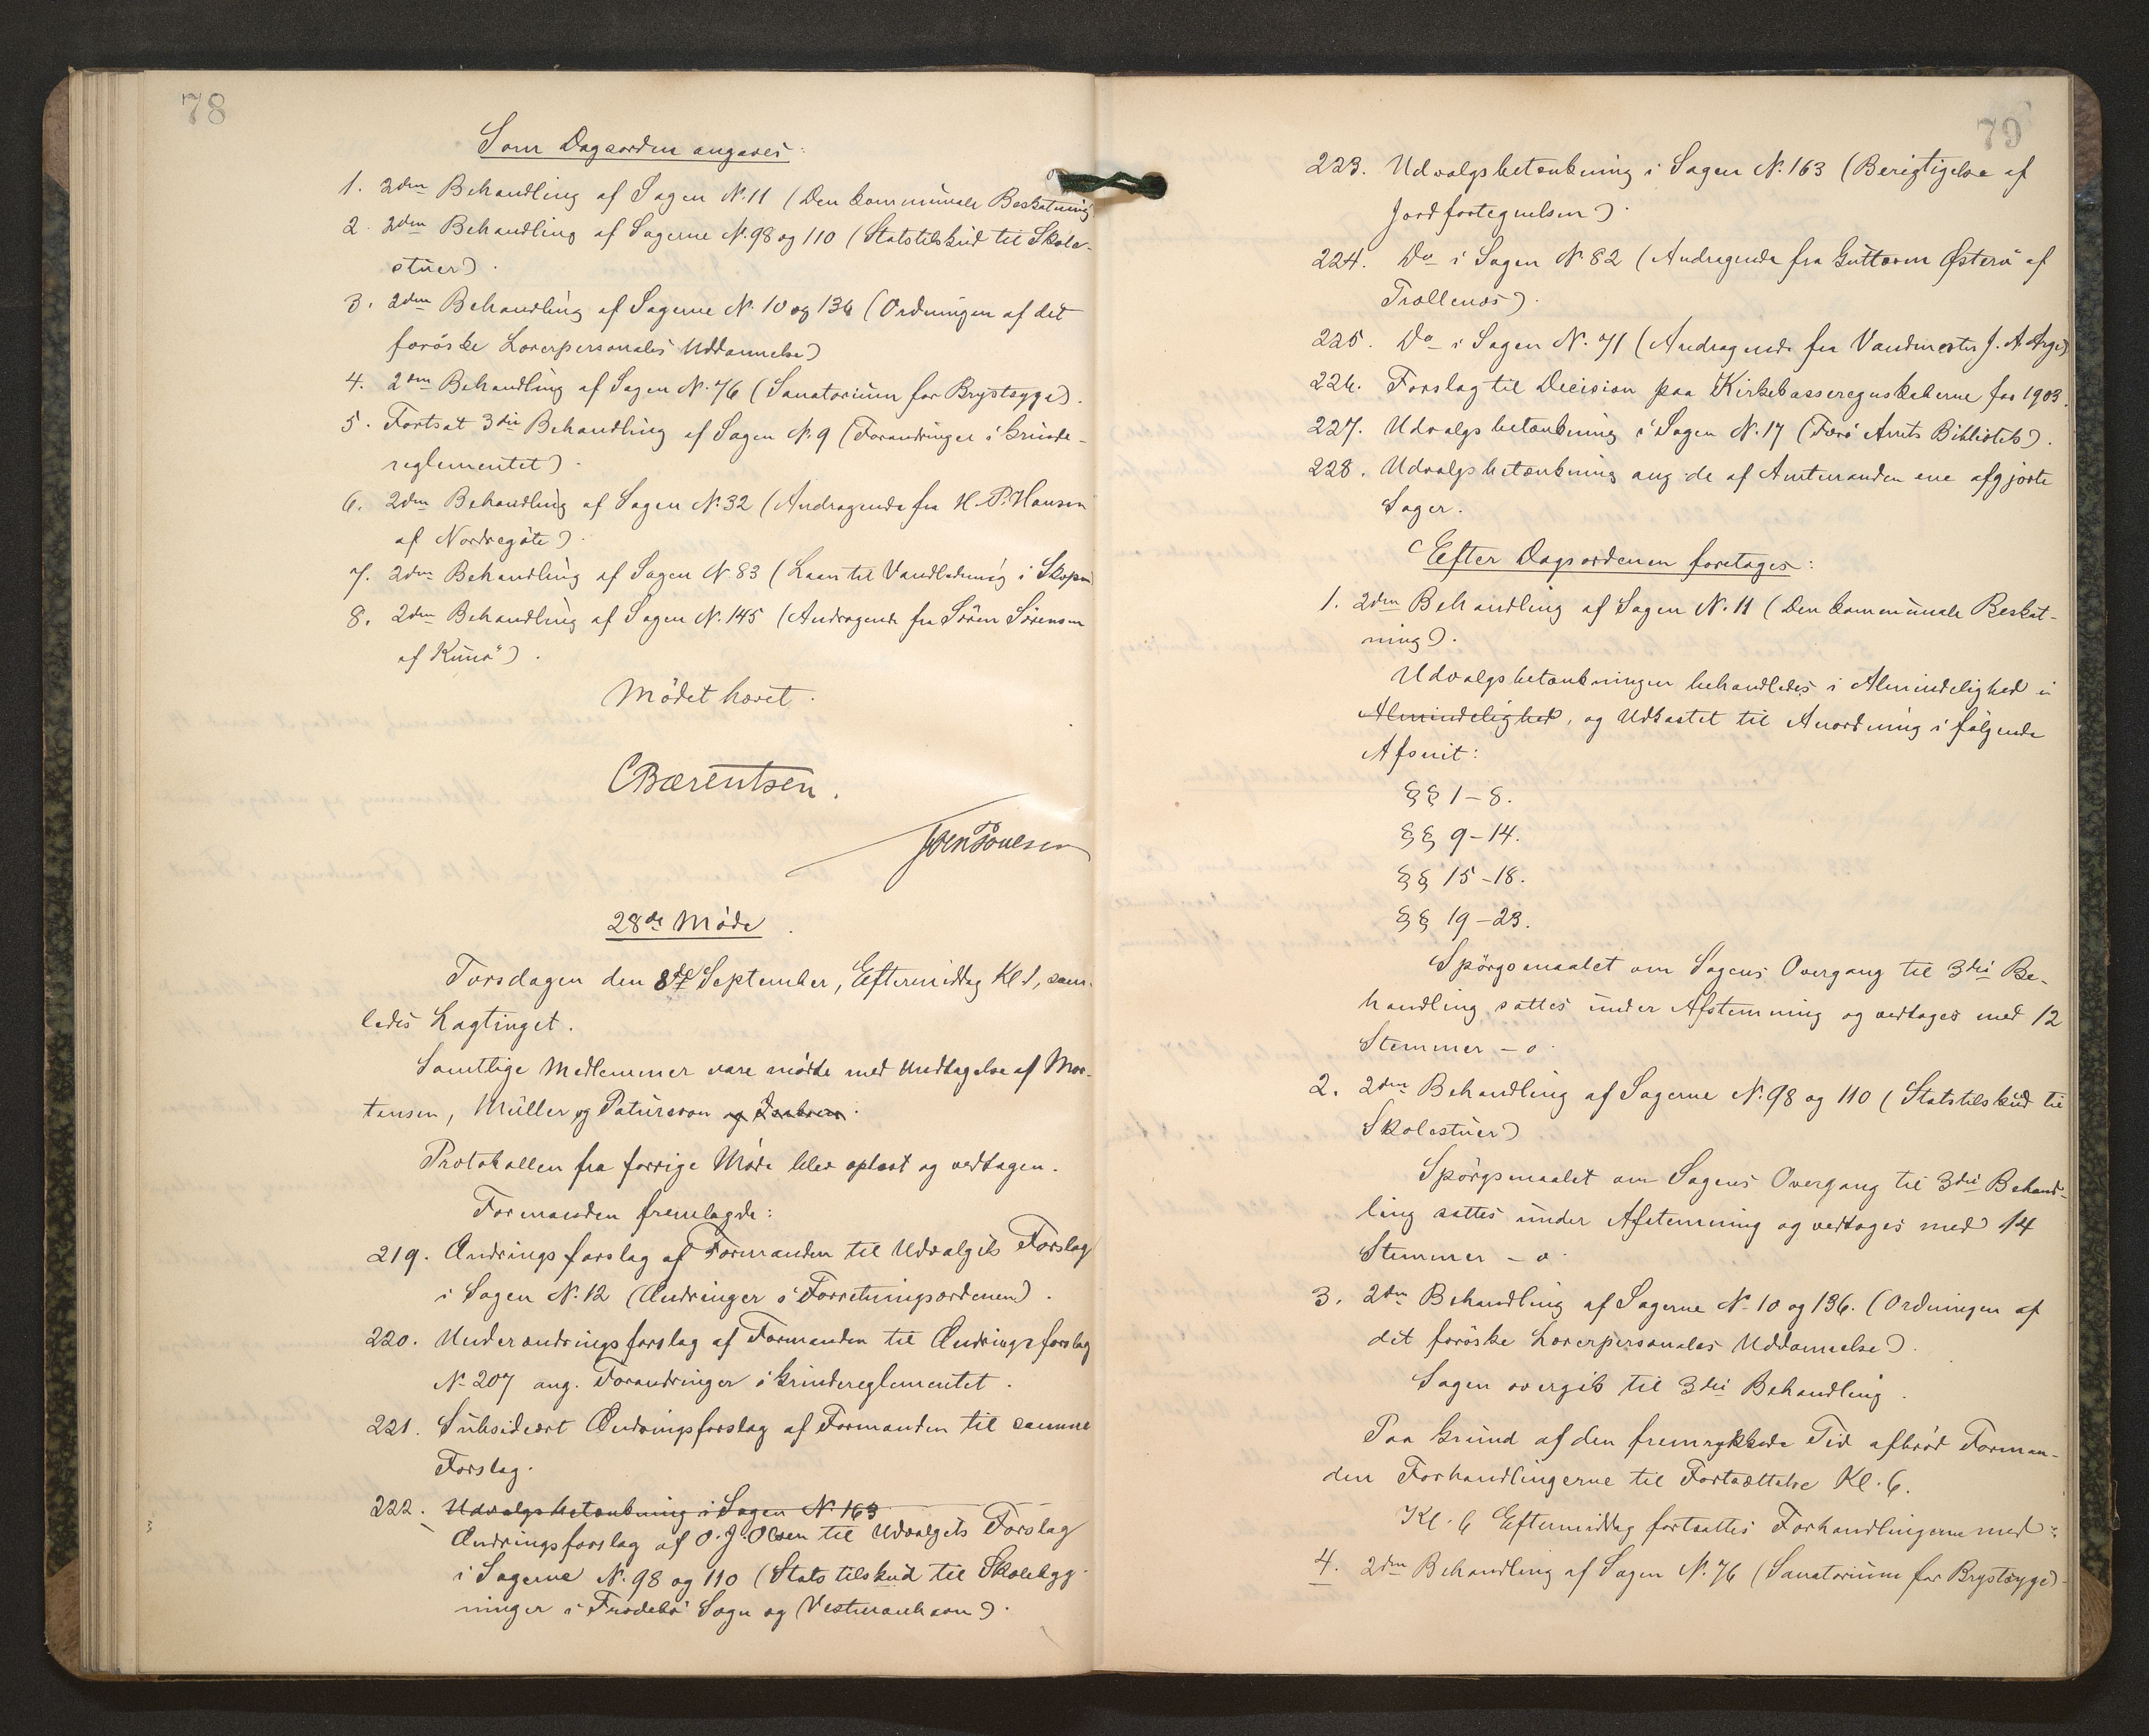 78
Som Dagsorden angaves:
1. 2den Behandling af Sagen N. 11 (Den kommunale Beskatning
2. 2den Behandling af Sagerne N. 98 og 110 (Statstilskud til Skole-
stuer).
3. 2den Behandling af Sagerne N. 10 og 136 (Ordningen af det
færøske Lærerpersonales Uddannelse)
4. 2den Behandling af Sagen N. 76 (Sanatorium for Brystsyge).
5. Fortsat 3die Behandling af Sagen N. 9 (Forandringer i Grinde-
reglementet).
6. 2den Behandling af Sagen N. 32 (Andragende fra H. P. Hansen
af Nordregøte).
7. 2den Behandling af Sagen N. 83 (Laan til Vandledning i Skopen
8. 2den Behandling af Sagen N. 145 (Andragende fra Sören Sörensen
af Kunö).
Mödet hævet.
CBærentsen.
Joen Poulsen
28de Möde.
Torsdagen den 8de September, Eftermiddag Kl 1, sam-
ledes Lagtinget.
Samtlige Medlemmer vare mödte med Undtagelse af Mor-
tensen, Müller og Patursson og
Protokollen fra forrige Möde blev oplæst og vedtagen.
Formanden fremlagde:
219. Ændringsforslag af Formanden til Udvalgets Forslag
i Sagen N. 12 (Ændringer i Forretningsordenen).
220. Underændringsforslag af Formanden til Ændringsforslag
N. 207 ang. Forandringer i Grindereglementet.
221. Subsidiært Ændringsforslag af Formanden til samme
Forslag.
222. Udvalgsbetænkning i Sagen N 163
Ændringsforslag af O. J. Olsen til Udvalgets Forslag
i Sagerne N. 98 og 110 (Statstilskud til Skolebyg-
ninger i Frodebö Sogn og Vestmanhavn).
79
223. Udvalgsbetænkning i Sagen N. 163 (Berigtigelse af
Jordfortegnelsen).
224. Do i Sagen N. 82 (Andragende fra Guttorm Østerö af
Trællenæs).
225. Do i Sagen N. 71 (Andragende fra Vandmester J. A. Arge)
226. Forslag til Decision paa Kirkekasseregnskaberne for 1903.
227. Udvalgsbetænkning i Sagen N. 17 (Færö Amts Bibliotek).
228. Udvalgsbetænkning ang. de af Amtmanden ene afgjorte
Sager.
Efter Dagsordenen foretages:
1. 2den Behandling af Sagen N. 11 (Den kommunale Beskat-
ning).
Udvalgsbetænkningen behandledes i Almindelighed i
Almindelighed, og Udkastet til Anordning i følgende
Afsnit:
§§ 1-8.
§§ 9-14.
§§ 15-18.
§§ 19-23.
Spörgsmaalet om Sagens Overgang til 3die Be-
handling sattes under Afstemning og vedtages med 12
Stemmer - o.
2. 2den Behandling af Sagerne N. 98 og 110 (Statstilskud til
Skolestuer)
Spörgsmaalet om Sagens Overgang til 3die Behand-
ling sattes under Afstemning og vedtages med 14
Stemmer - o.
3. 2den Behandling af Sagerne N. 10 og 136. (Ordningen af
det færöske Lærerpersonales Uddannelse).
Sagen overgik til 3die Behandling.
Paa Grund af den fremrykkede Tid afbröd Forman-
den Forhandlingerne til Fortsættelse Kl. 6.
Kl. 6 Eftermiddag fortsattes Forhandlingerne med:
4. 2den Behandling af Sagen N. 76 (Sanatorium for Brystsyge).